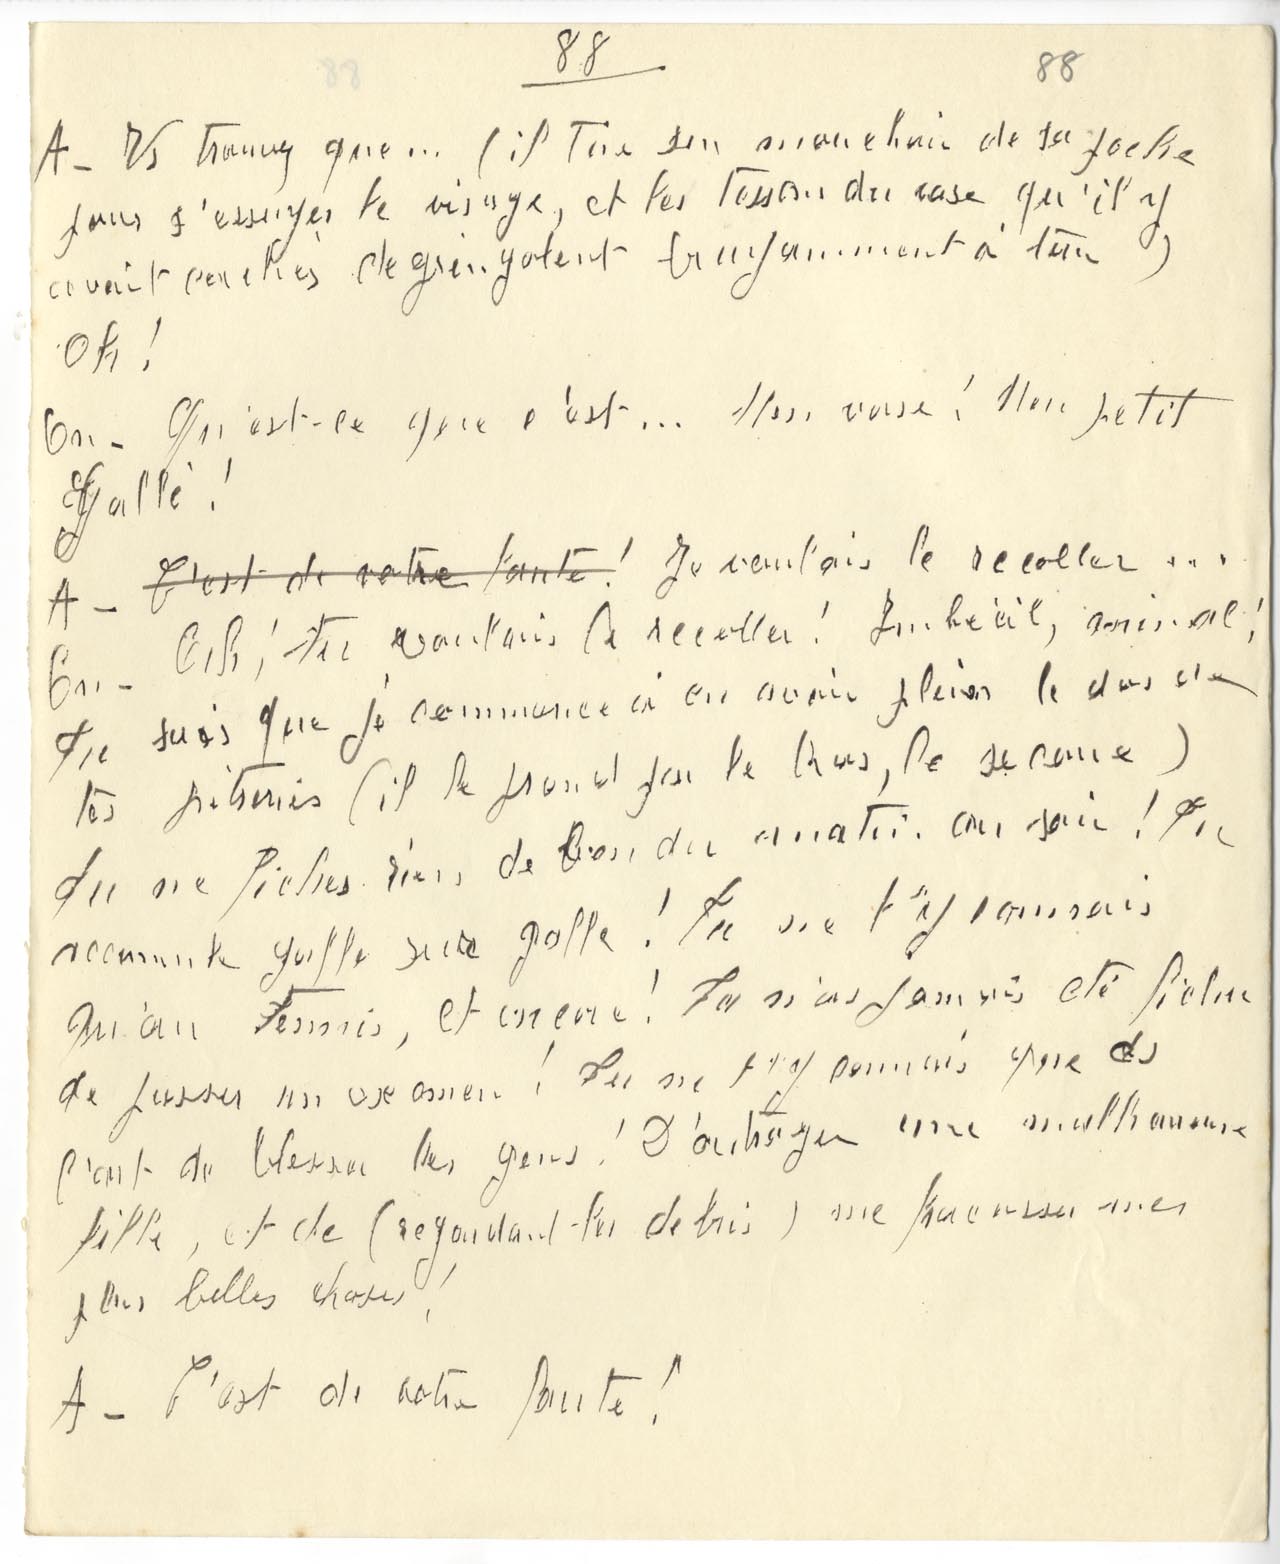 88
88
A - Vs trouvez que... (il tire son mouchoir de sa poche
pour s'essuyer le visage, et les tessons du vase qu'il y
avait cachés dégringolent bruyamment à terre)
Oh !
On - Qu'est-ce que c'est... Mon vase ! Mon petit
Gallé !
A - C'est de votre faute ! Je voulais le recoller ...
On - Ah ! tu voulais le recoller ! Imbécile, animal !
Tu sais que je commence à en avoir plein le dos de
tes pitreries (il le prend par le bras, le secoue)
Tu ne fiches rien de bon du matin au soir ! Tu
accumules gaffe sur gaffe ! Tu ne t'y connais
qu'au tennis, et encore ! Tu n'as jamais été fichu
de passer un examen ! Tu ne t'y connais que ds
l'art de blesser les gens ! D'outrager une malheureuse
fille, et de (regardant les débris) me fracasser mes
plus belles choses !
A - C'est de votre faute !